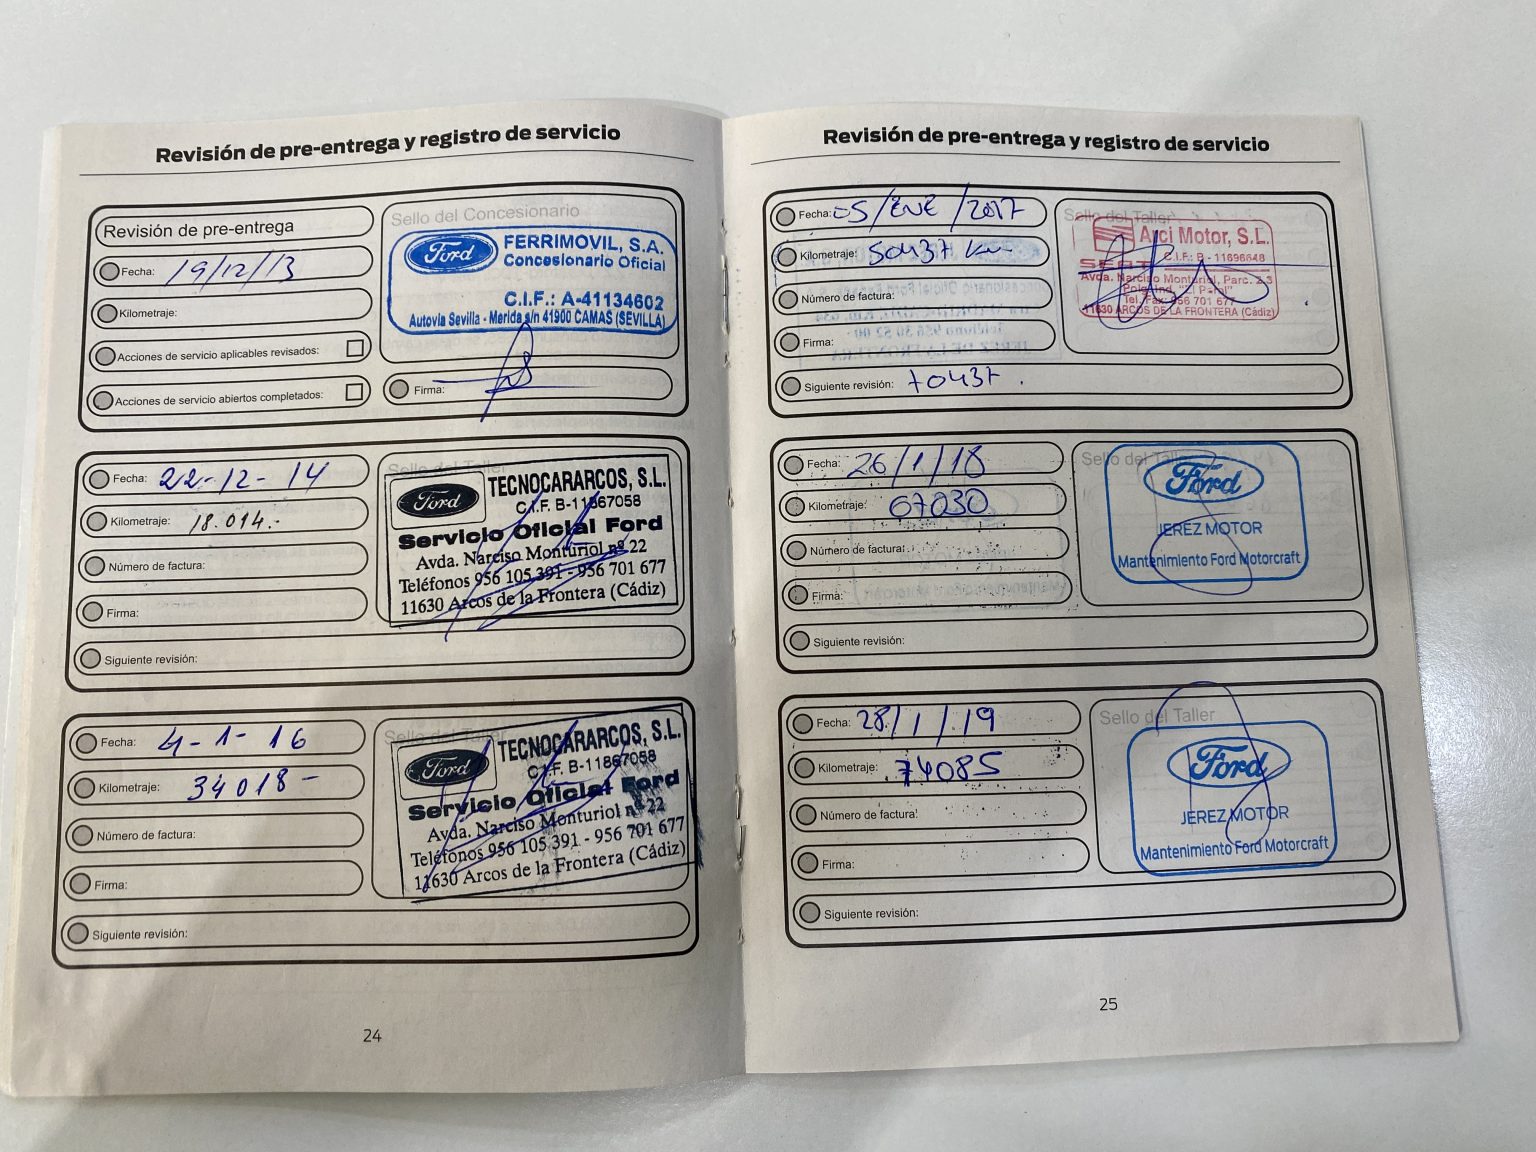 Revisión de pre-entrega y registro de servicio
Revisión de pre-entrega
Fecha: 19/12/13
Kilometraje:
Acciones de servicio aplicables revisados:
Acciones de servicio abiertos completados:
Sello del Concesionario
Ford
FERRIMOVIL, S.A.
Concesionario Oficial
C.I.F.: A-41134602
Autovía Sevilla - Merida s/n 41900 CAMAS (SEVILLA)
Firma:
Fecha: 22-12-14
Kilometraje: 18.014.-
Número de factura:
Firma:
Siguiente revisión:
Sello del Taller
Ford
TECNOCARARCOS, S.L.
C.I.F. B-11867058
Servicio Oficial Ford
Avda. Narciso Monturiol nº 22
Teléfonos 956 105 391 - 956 701 677
11630 Arcos de la Frontera (Cádiz)
Fecha: 4-1-16
Kilometraje: 34018-
Número de factura:
Firma:
Siguiente revisión:
Sello del Taller
Ford
TECNOCARARCOS, S.L.
C.I.F. B-11867058
Servicio Oficial Ford
Avda. Narciso Monturiol nº 22
Teléfonos 956 105 391 - 956 701 677
11630 Arcos de la Frontera (Cádiz)
24
Revisión de pre-entrega y registro de servicio
Fecha: 05/ENE/2017
Kilometraje: 50437 km
Número de factura:
Firma:
Siguiente revisión: 70437.
Sello del Taller
Arci Motor, S.L.
SEAT C.I.F.: B - 11696648
Avda. Narciso Monturiol, Parc. 2.3
Polg. Ind. "El Peral"
Tel. Fax: 956 701 677
11630 ARCOS DE LA FRONTERA (Cádiz)
Fecha: 26/1/18
Kilometraje: 67030
Número de factura:
Firma:
Siguiente revisión:
Sello del Taller
Ford
JEREZ MOTOR
Mantenimiento Ford Motorcraft
Fecha: 28/1/19
Kilometraje: 74085
Número de factura:
Firma:
Siguiente revisión:
Sello del Taller
Ford
JEREZ MOTOR
Mantenimiento Ford Motorcraft
25